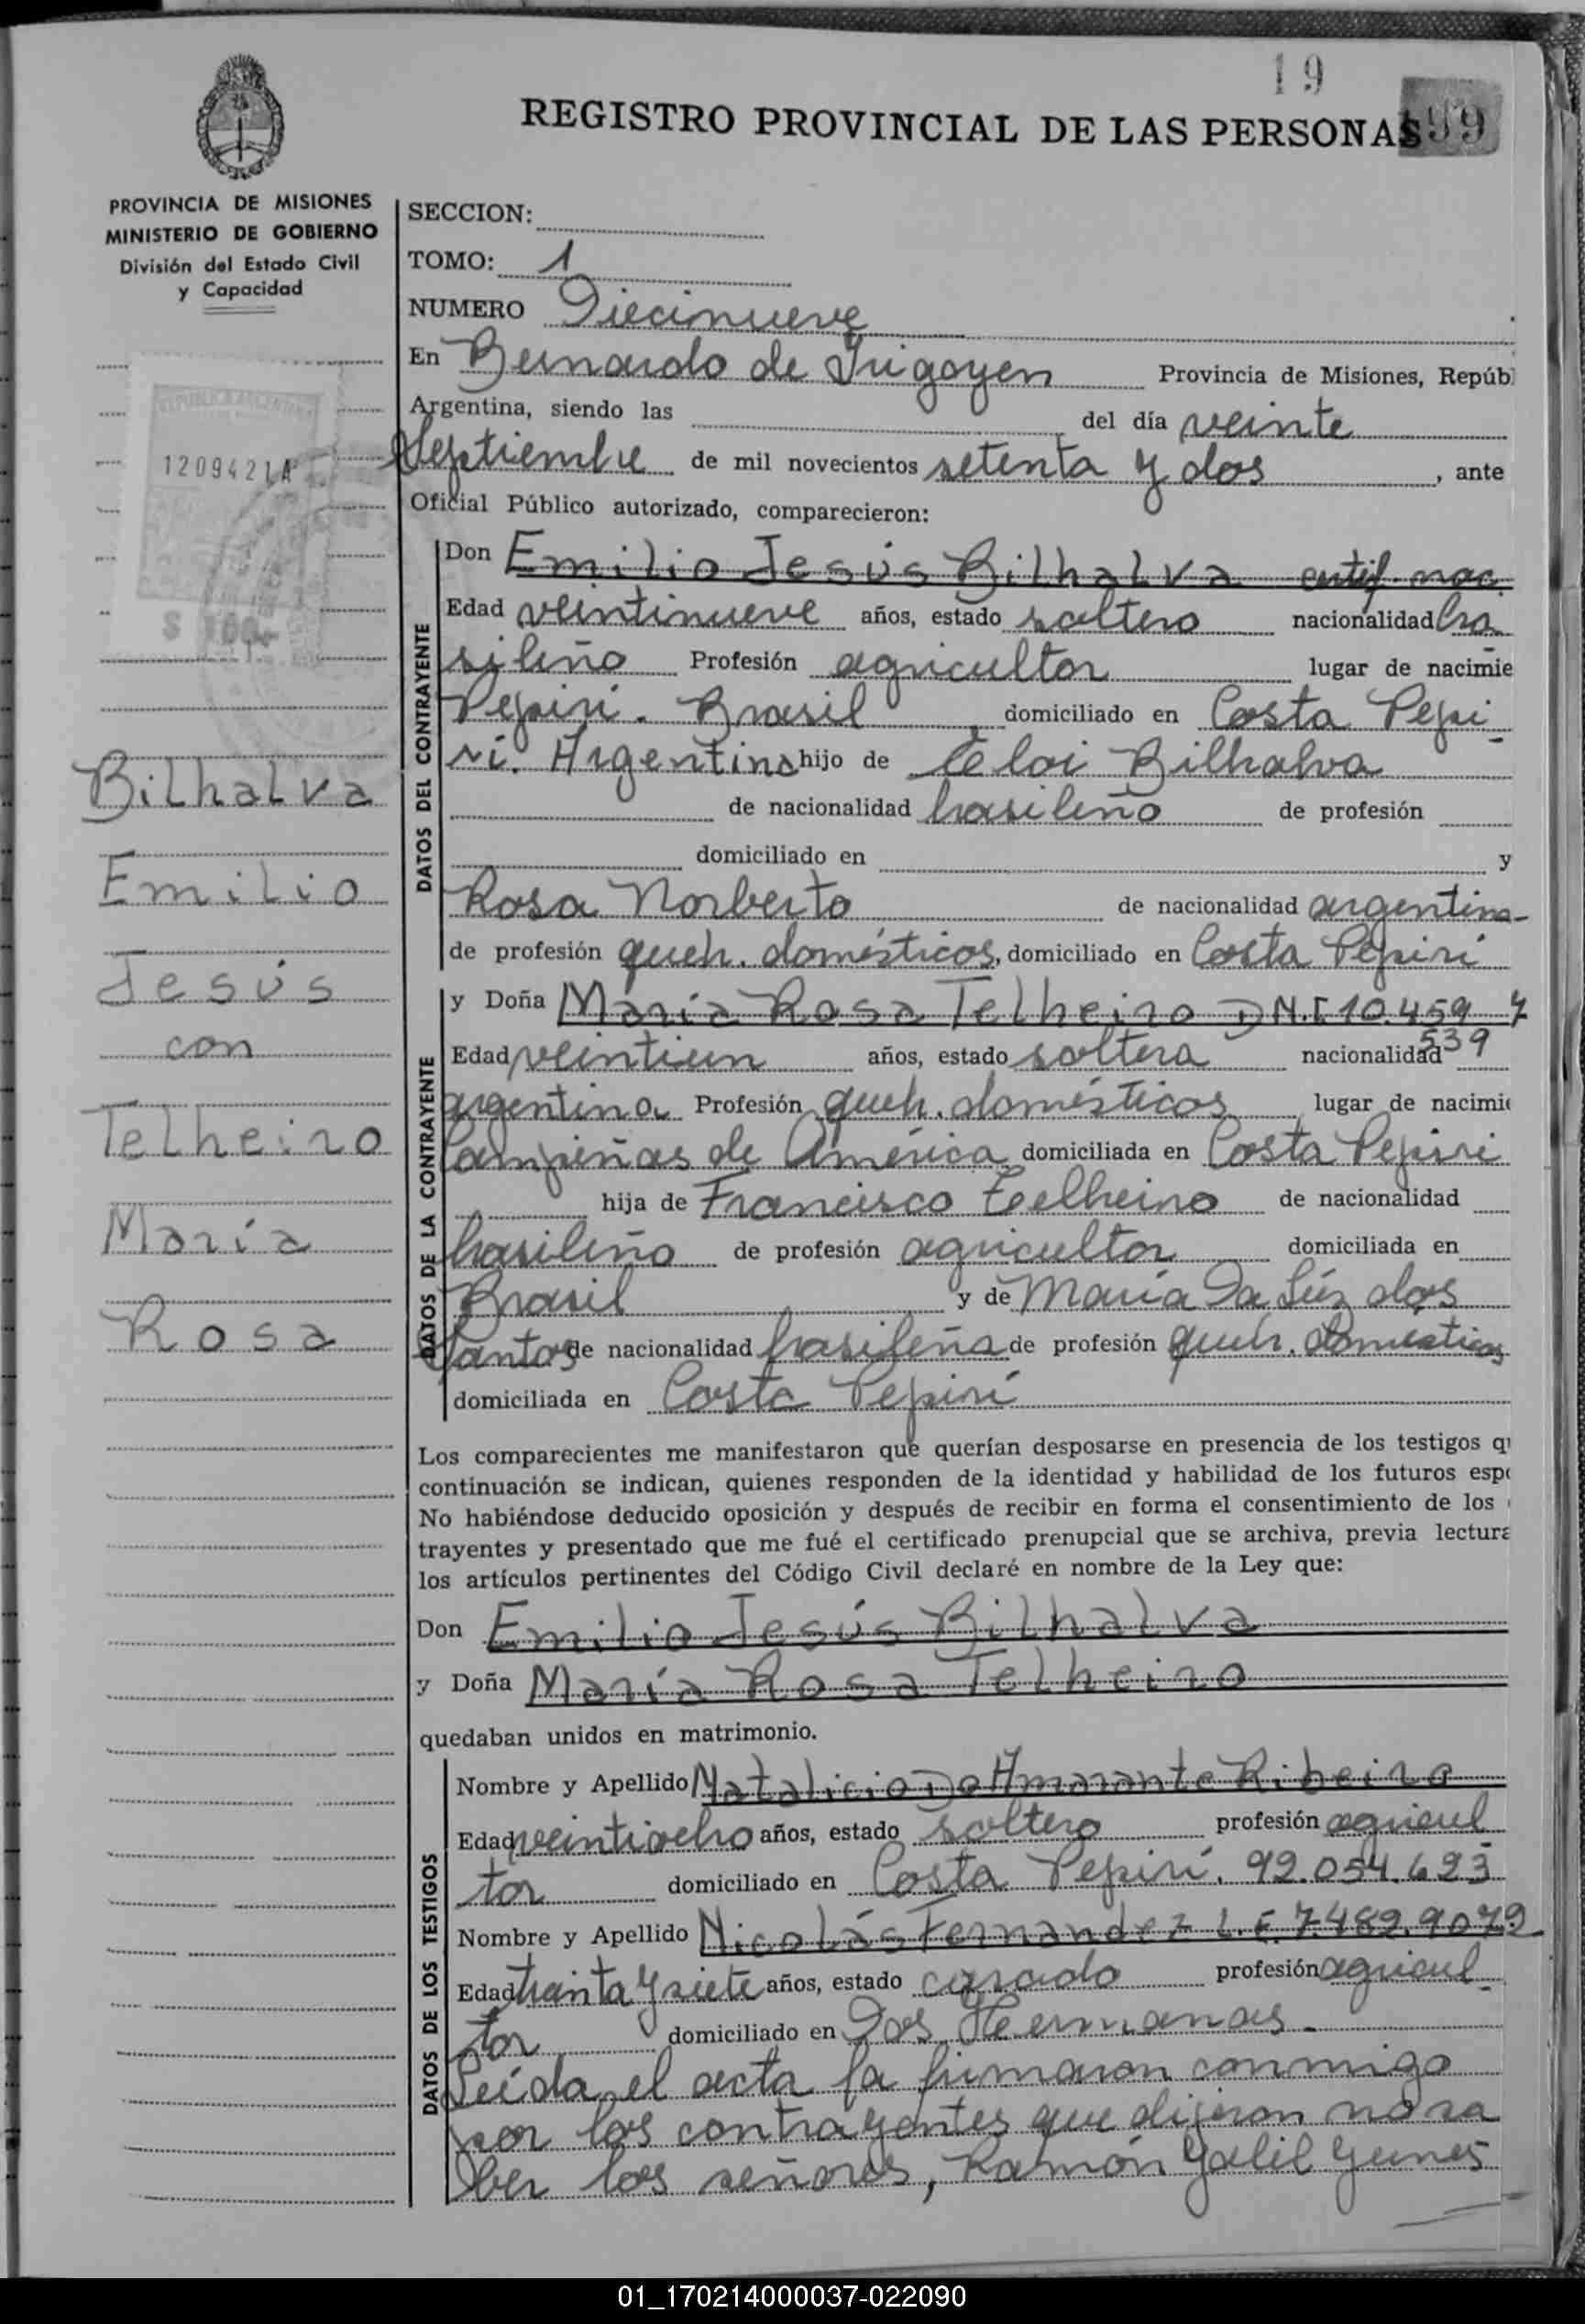 19
REGISTRO PROVINCIAL DE LAS PERSONAS 99
PROVINCIA DE MISIONES
MINISTERIO DE GOBIERNO
División del Estado Civil
y Capacidad
REPUBLICA ARGENTINA
1209421A
$ 100
Bilhalva
Emilio
Jesús
con
Telheiro
María
Rosa
SECCION:
TOMO: 1
NUMERO Diecinueve
En Bernardo de Irigoyen Provincia de Misiones, Repúbl
Argentina, siendo las del día veinte
Septiembre de mil novecientos setenta y dos, ante
Oficial Público autorizado, comparecieron:
DATOS DEL CONTRAYENTE
Don Emilio Jesús Bilhalva certif. nac.
Edad veintinueve años, estado soltero nacionalidad bra
sileño Profesión agricultor lugar de nacimie
Pepiri. Brasil, domiciliado en Costa Pepi
ri. Argentina hijo de Eloi Bilhalva
de nacionalidad brasileño de profesión
domiciliado en y
Rosa Norberto de nacionalidad argentina
de profesión queh. domésticos, domiciliado en Costa Pepirí
DATOS DE LA CONTRAYENTE
y Doña María Rosa Telheiro D.N.I. 10.459
539
Edad veintiun años, estado soltera nacionalidad
argentina Profesión queh. domésticos lugar de nacimie
Campiñas de América domiciliada en Costa Pepiri
hija de Francisco Telheiro de nacionalidad
brasileño de profesión agricultor domiciliada en
Brasil y de María Da Lúz dos
Santos de nacionalidad brasileña de profesión queh. domésticos
domiciliada en Costa Pepirí
Los comparecientes me manifestaron que querían desposarse en presencia de los testigos q
continuación se indican, quienes responden de la identidad y habilidad de los futuros espo
No habiéndose deducido oposición y después de recibir en forma el consentimiento de los
trayentes y presentado que me fué el certificado prenupcial que se archiva, previa lectura
los artículos pertinentes del Código Civil declaré en nombre de la Ley que:
Don Emilio Jesús Bilhalva
y Doña María Rosa Telheiro
quedaban unidos en matrimonio.
DATOS DE LOS TESTIGOS
Nombre y Apellido Natalicio Do Amarante Ribeiro
Edad veintiocho años, estado soltero profesión agricul
tor domiciliado en Costa Pepirí. 92.054.623
Nombre y Apellido Nicolás Fernandez L.E. 7.489.9079
Edad treinta y siete años, estado casado profesión agricul
tor domiciliado en Dos Hermanas.
Leída el acta la firmaron conmigo
por los contrayentes que dijeron no sa
ber los señores, Ramón Yalil Yunes
01_170214000037-022090